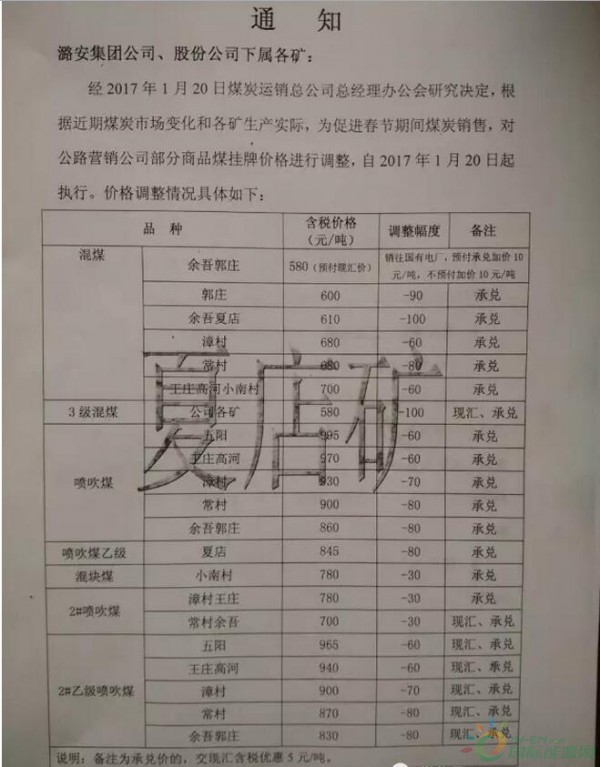 通 知
潞安集团公司、股份公司下属各矿：
经 2017 年 1 月 20 日煤炭运销总公司总经理办公会研究决定，根
据近期煤炭市场变化和各矿生产实际，为促进春节期间煤炭销售，对
公路营销公司部分商品煤挂牌价格进行调整，自 2017 年 1 月 20 日起
执行。价格调整情况具体如下：
品 种 含税价格（元/吨） 调整幅度 备注
混煤 余吾郭庄 580（预付现汇价） 销往国有电厂，预付承兑加价 10 元/吨，不预付加价 10 元/吨
郭庄 600 -90 承兑
余吾夏店 610 -100 承兑
漳村 680 -60 承兑
常村 680 -80 承兑
王庄高河小南村 700 -60 承兑
3 级混煤 公司各矿 580 -100 现汇、承兑
喷吹煤 五阳 995 -60 承兑
王庄高河 970 -60 承兑
漳村 930 -70 承兑
常村 900 -80 承兑
余吾郭庄 860 -80 承兑
喷吹煤乙级 夏店 845 -80 承兑
混块煤 小南村 780 -30 承兑
2#喷吹煤 漳村王庄 780 -30 承兑
常村余吾 700 -30 现汇、承兑
2#乙级喷吹煤 五阳 965 -60 现汇、承兑
王庄高河 940 -60 现汇、承兑
漳村 900 -70 现汇、承兑
常村 870 -80 现汇、承兑
余吾郭庄 830 -80 现汇、承兑
说明：备注为承兑价的，交现汇含税优惠 5 元/吨。
夏店矿